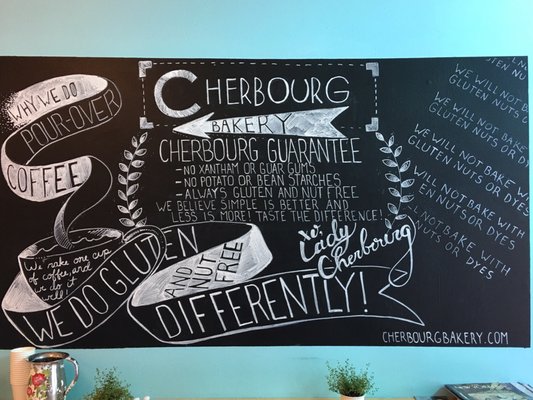 WHY WE DO
POUR-OVER
COFFEE
We make one cup
of coffee, and
we do it
well!
CHERBOURG
BAKERY
CHERBOURG GUARANTEE
- NO XANTHAM OR GUAR GUMS
- NO POTATO OR BEAN STARCHES
- ALWAYS GLUTEN AND NUT FREE
WE BELIEVE SIMPLE IS BETTER AND
LESS IS MORE! TASTE THE DIFFERENCE!
xo.
Lady
Cherbourg
WE DO GLUTEN
AND NUT
FREE
DIFFERENTLY!
WE WILL NOT BAKE WITH
GLUTEN NUTS OR DYES
WE WILL NOT BAKE
GLUTEN NUTS OR DYES
WE WILL NOT BAKE
GLUTEN NUTS OR DYES
WILL NOT BAKE WITH
EN NUTS OR DYES
NOT BAKE WITH
NUTS OR DYES
CHERBOURGBAKERY.COM